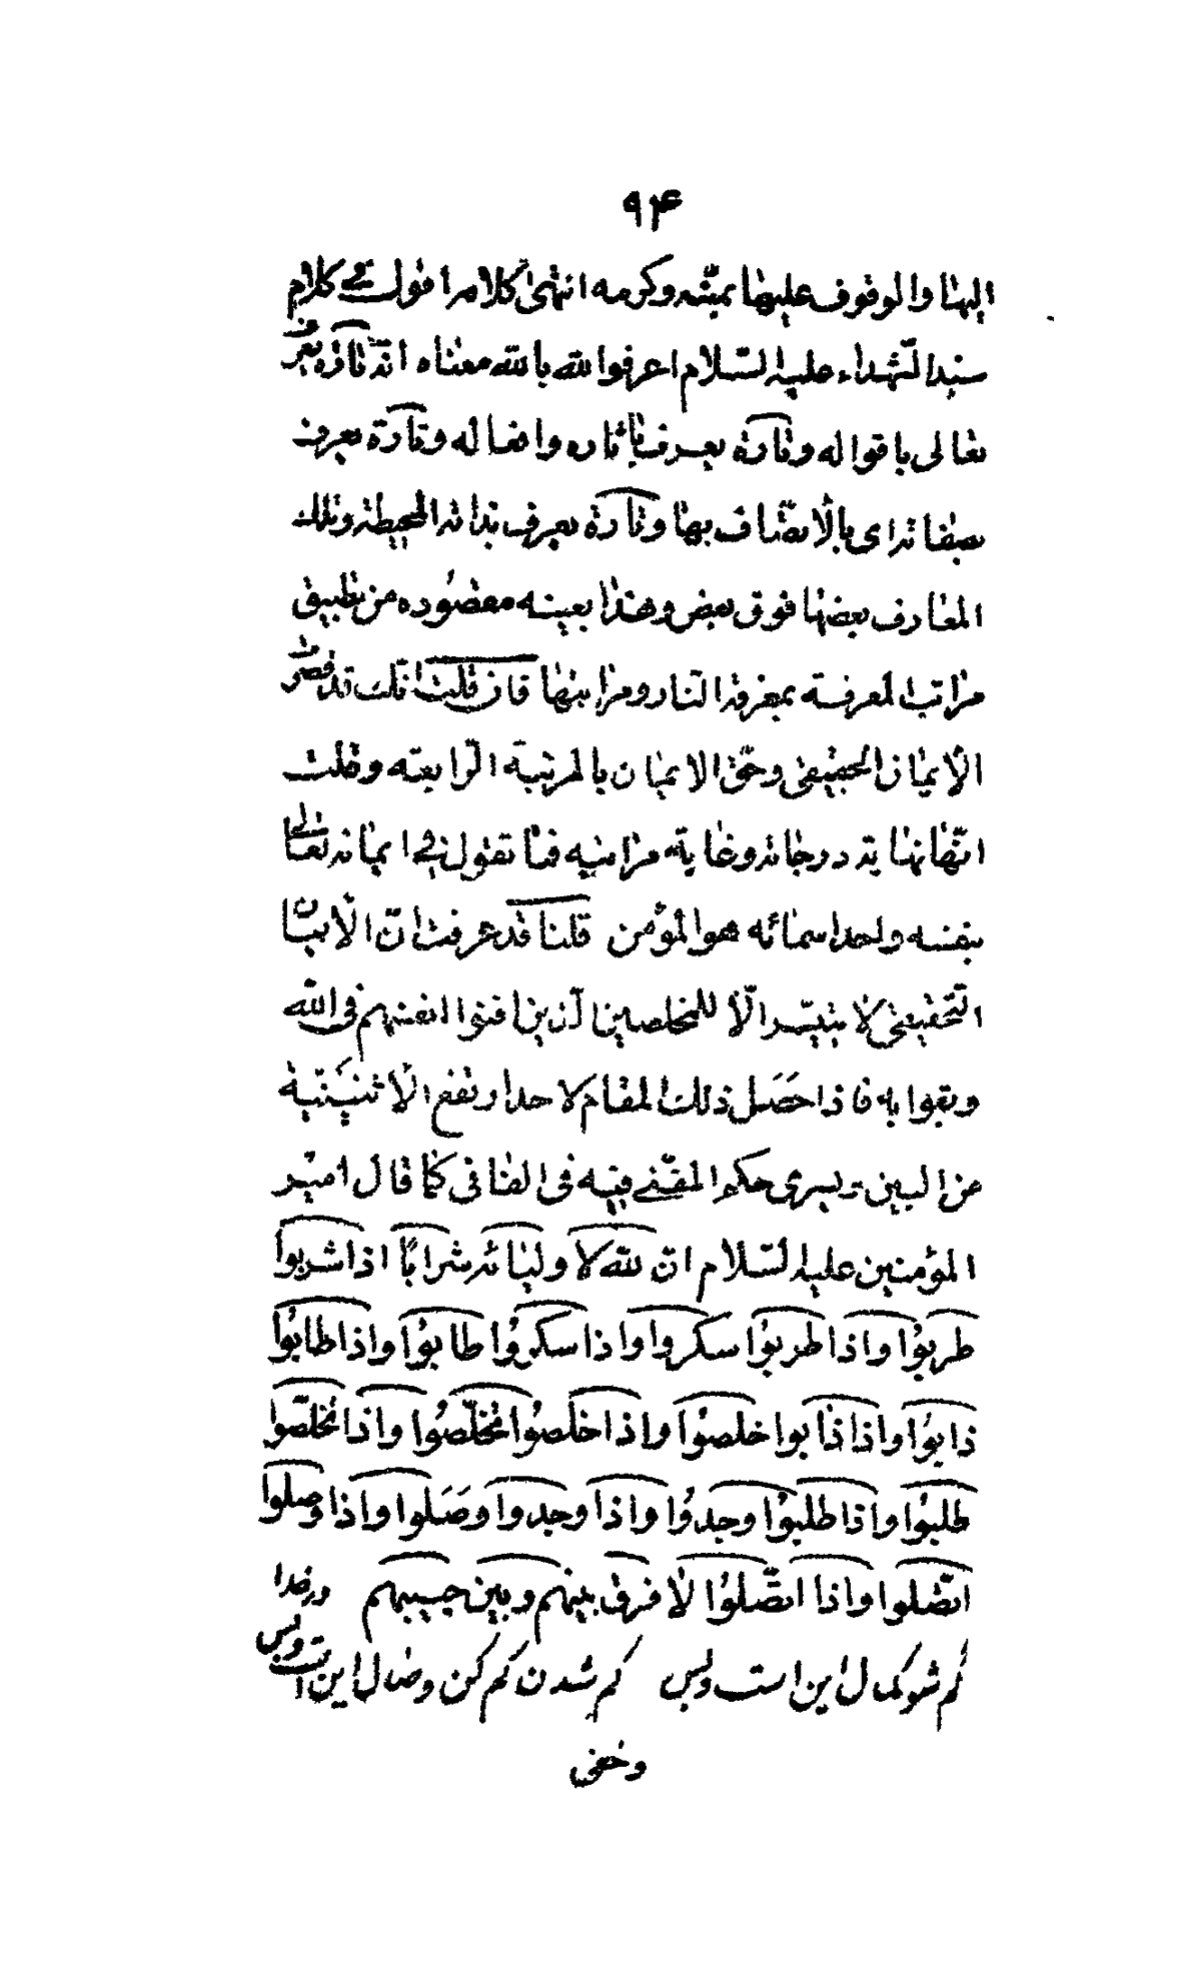 ۹۴
اليها والوقوف عليها بمنّه وكرمه انتهى كلامه اقول في كلام
سيد الشّهداء عليه السّلام اعرفوا لله بالله معناه انّه تارة يعرف
تعالى باقواله وتارة يعرف بآثاره وافعاله وتارة يعرف
بصفاته اى بالاتصّاف بها وتارة يعرف بذاته المحيطة وتلك
المعارف بعضها فوق بعض وهذا بعينه مقصوده من تطبيق
مراتب المعرفة بمعرفة النار ومراتبها فان قلت اقلت قد فصّرت
الأيمان الحقيقى وحقّ الايمان بالمرتبة الرّابعة وقلت
انّها نهاية درجاته وغاية مراتبه فما تقول في ايمانه تعالى
بنفسه واحد اسمائه هو المؤمن قلنا قد عرفت انّ الأيمان
التّحقيقى لا يتيسّر الّا للمخلصين الّذين افنوا انفسهم فى الله
وبقوا به فاذا حَصَل ذلك المقام لاحد ارتفع الأثنينيّة
من البين ويسرى حكم المفنى فيه فى الفانى كما قال امير
المؤمنين عليه السّلام ان لله لاوليائه شرابًا اذا شربوا
طربوُا واذا طربوُا سكروا واذا سكروُا طابوُا واذا طابوُا
ذابوُا واذا ذابوا خلصوُا واذا خلصوُا تخلّصوُا واذا تخلّصوا
طلبوُا واذا طلبوُا وجدوُا واذا وجدوا وصَلوا واذا وصلوا
اتّصلوا واذا اتّصلوُا لا فرق بينهم وبين حبيبهم در خدا
گم شو كمال اين است وبس گم شدن گم كن وصال اين است وبس
وخفى